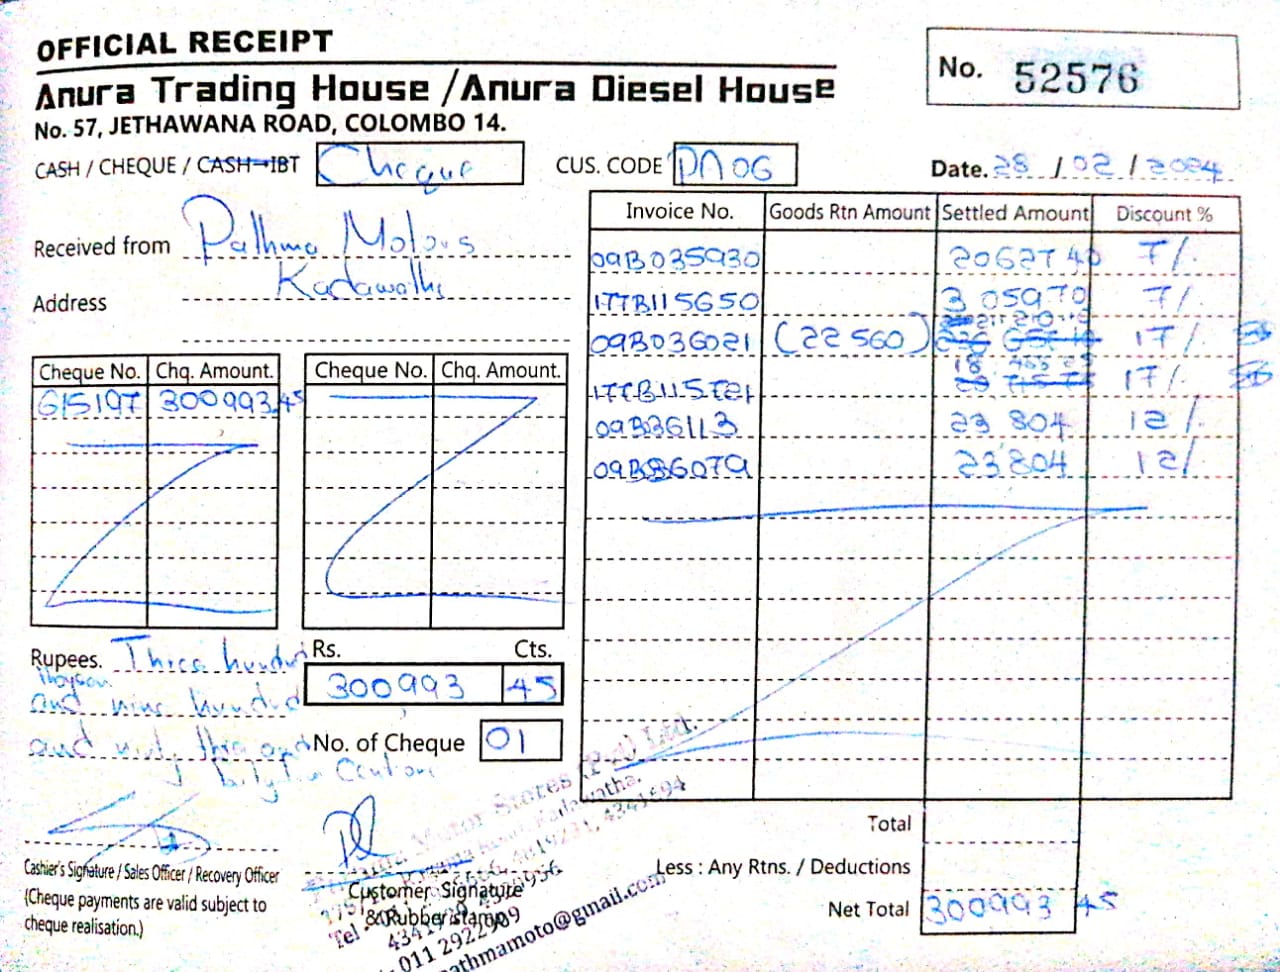 OFFICIAL RECEIPT
Anura Trading House / Anura Diesel House
No. 57, JETHAWANA ROAD, COLOMBO 14.
No. 52576
CASH / CHEQUE / CASH-IBT Cheque
CUS. CODE PA06
Date. 28 / 02 / 2024
Received from Pathma Motors
Address Kadawatha
Invoice No. Goods Rtn Amount Settled Amount Discount %
09B035930 20627 40 7%
177B115650 3 059 70 7%
09B036021 (22 560) 17%
17%
09B36113 23 804 12%
09B36079 23 804 12%
Cheque No. Chq. Amount. Cheque No. Chq. Amount.
615197 300993.45
Rupees. Three hundred
and nine hundred
and
Rs. Cts.
300993 45
No. of Cheque 01
Total
Less : Any Rtns. / Deductions
Net Total 300993 45
Cashier's Signature / Sales Officer / Recovery Officer
(Cheque payments are valid subject to
cheque realisation.)
Customer Signature
& Rubber stamp
Motor Stores (Pvt) Ltd.
Kadawatha.
4341694
Tel
011 2922909
pathmamoto@gmail.com